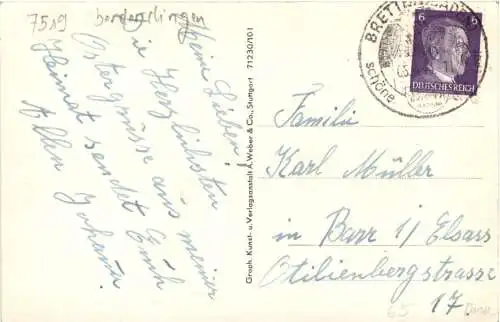 7519
Meine Lieben!
Die Herzlichsten
Ostergrüsse aus meiner
Heimat sendet Euch
Allen Johanna.
Graph. Kunst- u. Verlagsanstalt A. Weber & Co., Stuttgart 71230/101
BRETTEN
schöne
6 6
DEUTSCHES REICH
Familie
Karl Müller
in Barr i/ Elsass
Otilienbergstrasse
17
65